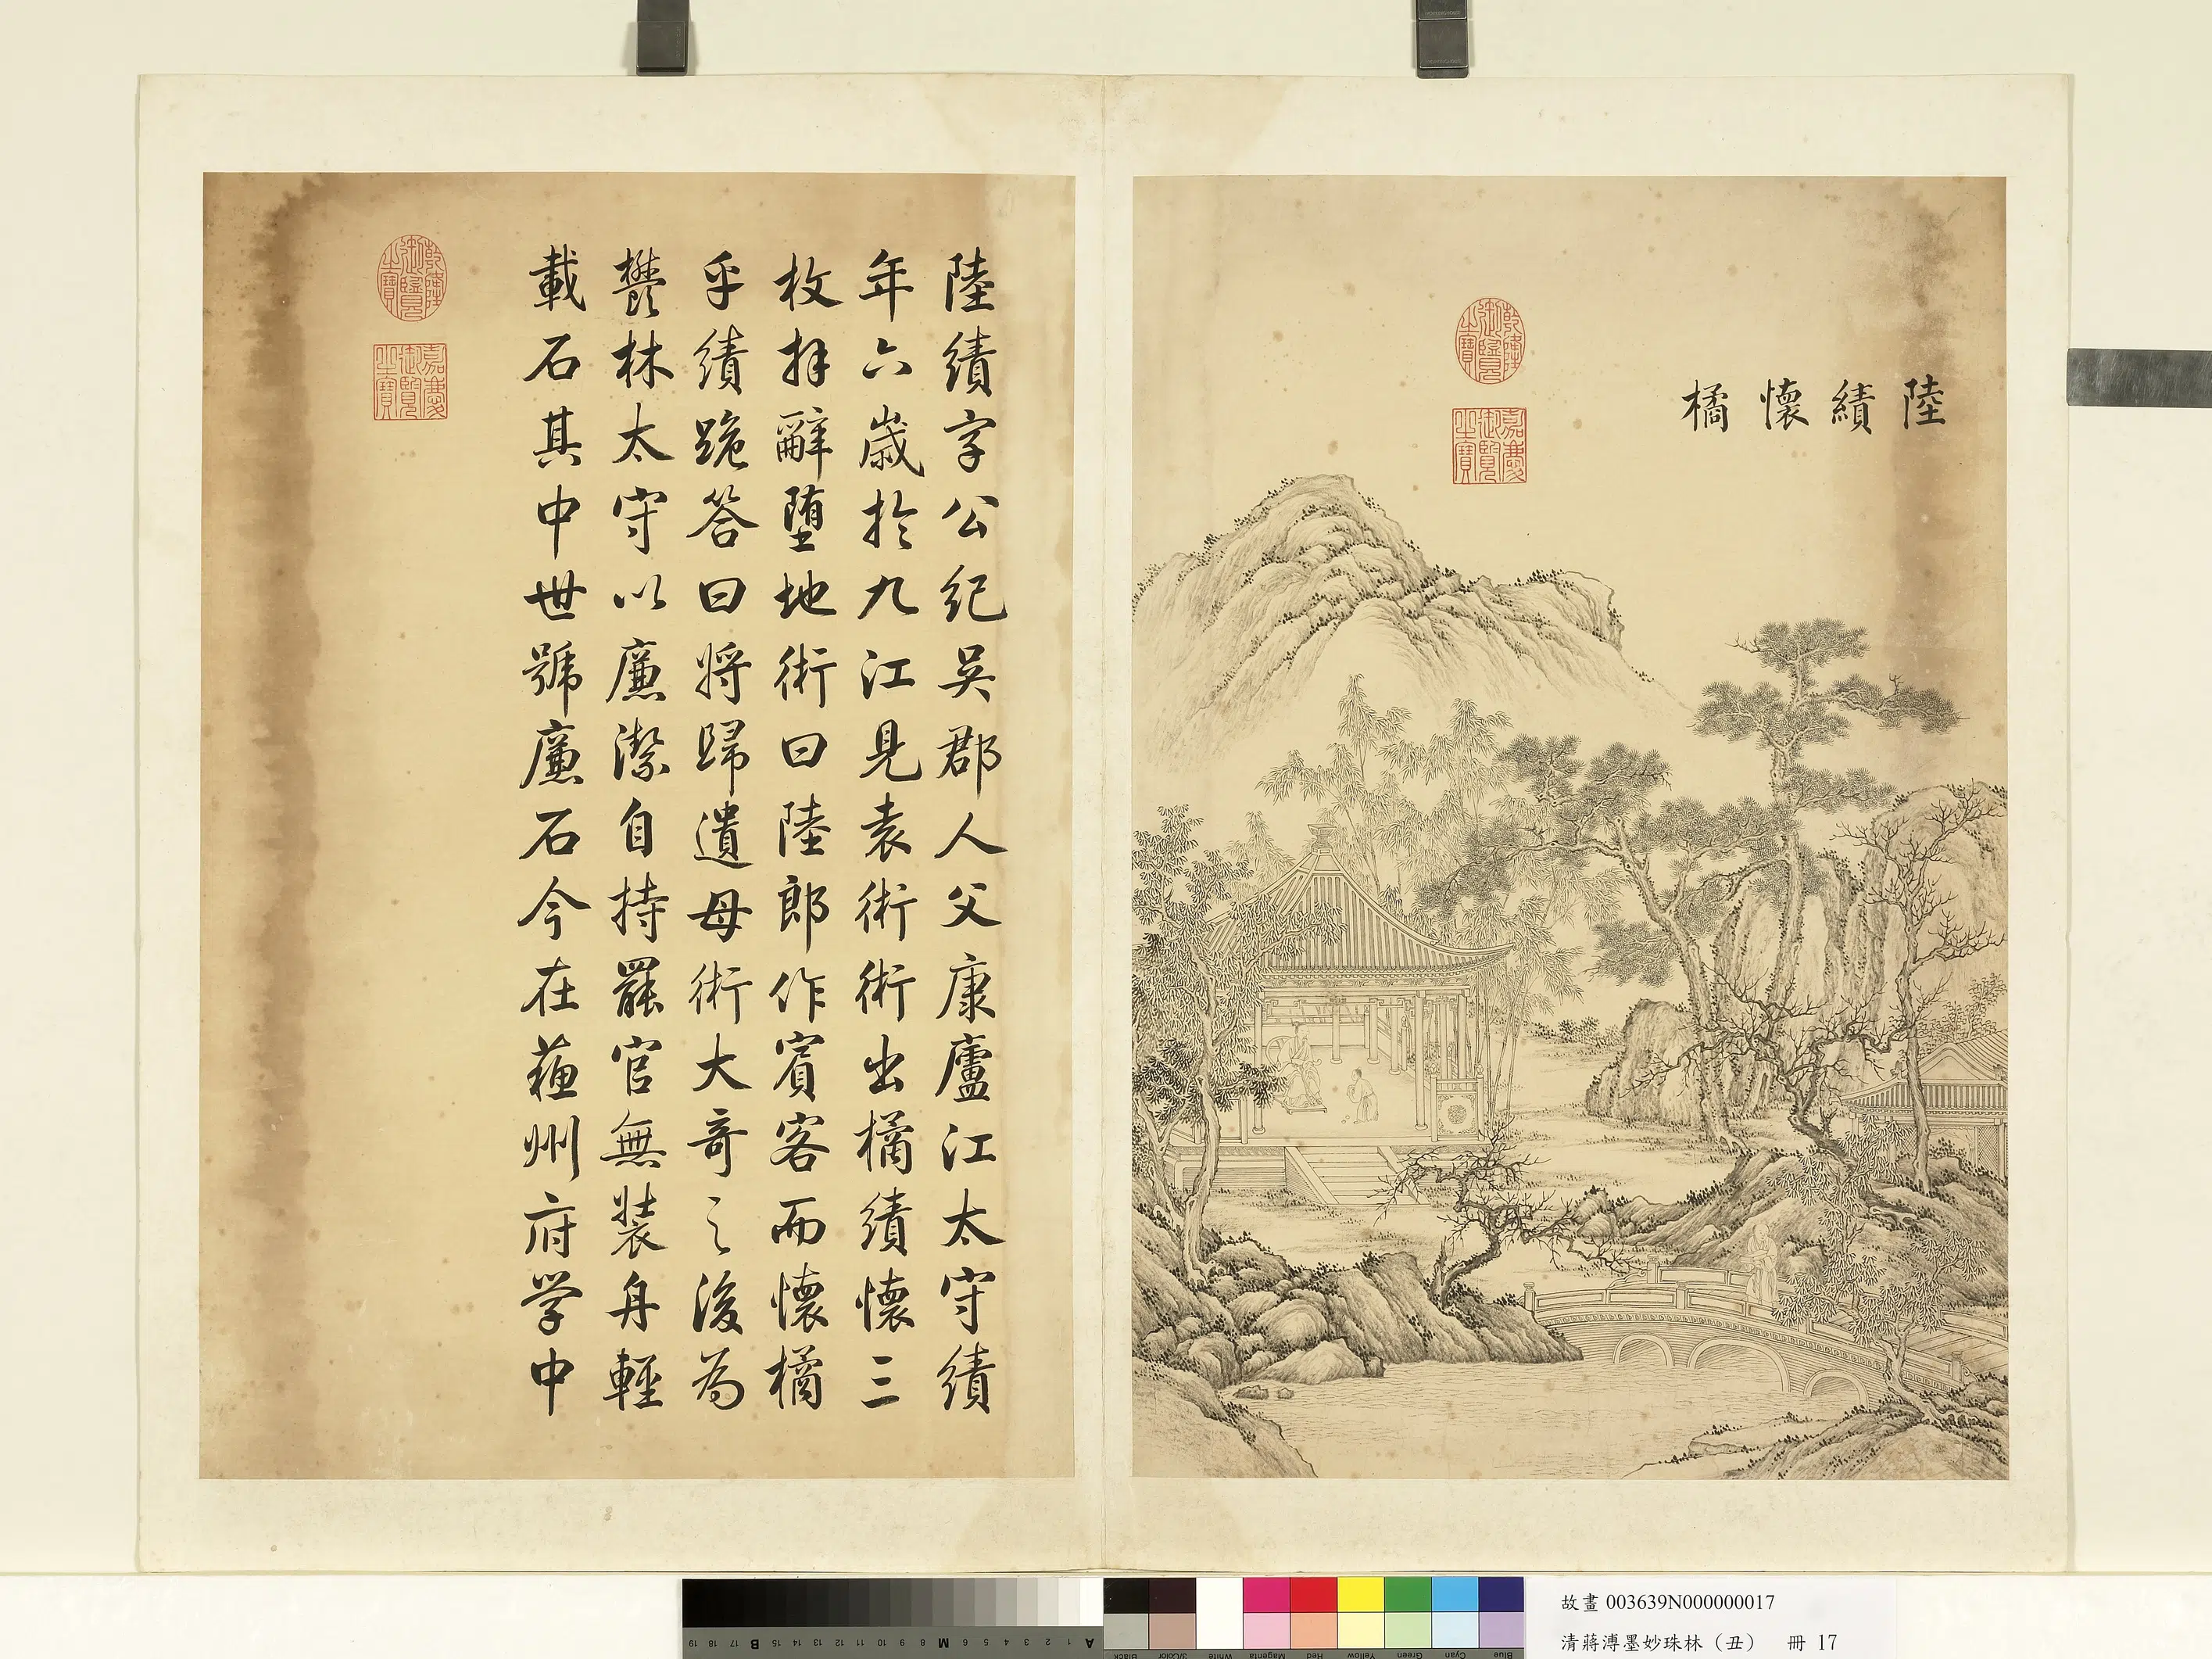 陸績懷橘
乾隆御覽之寶
嘉慶御覽之寶
陸績字公紀吳郡人父康廬江太守績
年六歲於九江見袁術術出橘績懷三
枚拜辭墮地術曰陸郎作賓客而懷橘
乎績跪答曰將歸遺母術大奇之後為
鬱林太守以廉潔自持罷官無裝舟輕
載石其中世號廉石今在蘇州府学中
乾隆御覽之寶
嘉慶御覽之寶
故畫 003639N000000017
清蔣溥墨妙珠林（丑） 冊 17
19 18 17 B 15 14 13 12 11 10 9 8 M 6 5 4 3 2 1 A
Black 3/Color White Magenta Red Yellow Green Cyan Blue